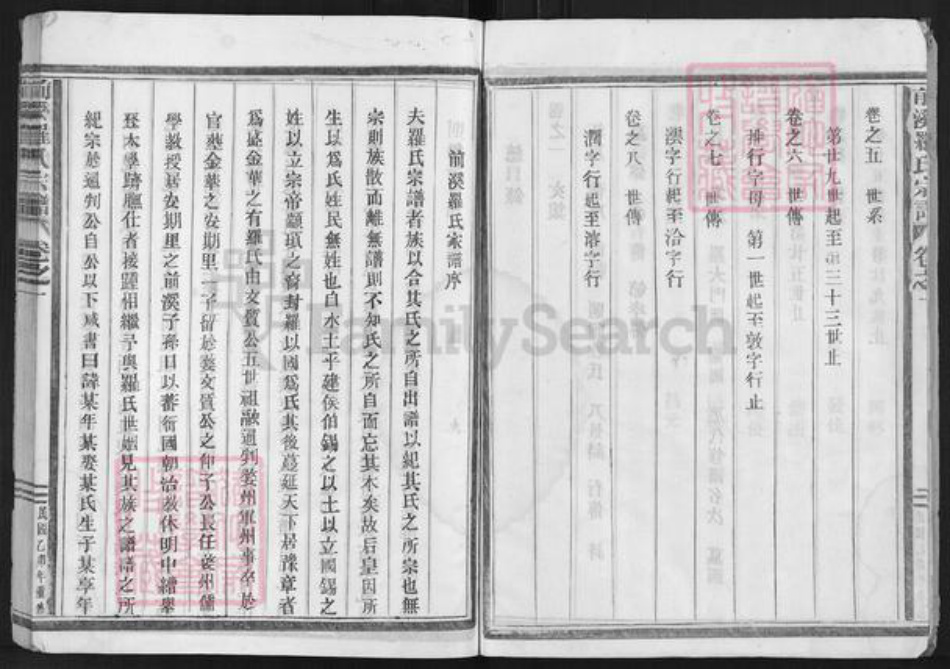 卷之五　世系
第廿九世起至卅三十三世止
卷之六　世傳
排行字母　第一世起至敦字行止
卷之七　世傳
澳字行起至洽字行
卷之八　世傳
潤字行起至溶字行
前溪羅氏宗譜　卷之一
前溪羅氏家譜序
夫羅氏宗譜者族以合其氏之所自出譜以紀其氏之所宗也無
宗則族散而離無譜則不知氏之所自而忘其本矣故后皇因所
生以爲氏姓民無姓也自水土平建侯伯錫之以土以立國錫之
姓以立宗帝顓頊之裔封羅以國爲氏其後蔓延天下居豫章者
爲盛金華之有羅氏由文質公五世祖融通判婺州軍州事卒於
官葬金華之安期里一子留於婺文質公之仲子公長任婺州儒
學教授居安期里之前溪子孫日以蕃衍國朝治教休明中繪舉
登太學躋膴仕者接踵相繼予與羅氏世姻見其族之譜譜之所
紀宗於通判公自公以下咸書曰諱某年某娶某氏生于某享年
前溪羅氏宗譜　卷之一
民國乙卯年重修
FamilySearch